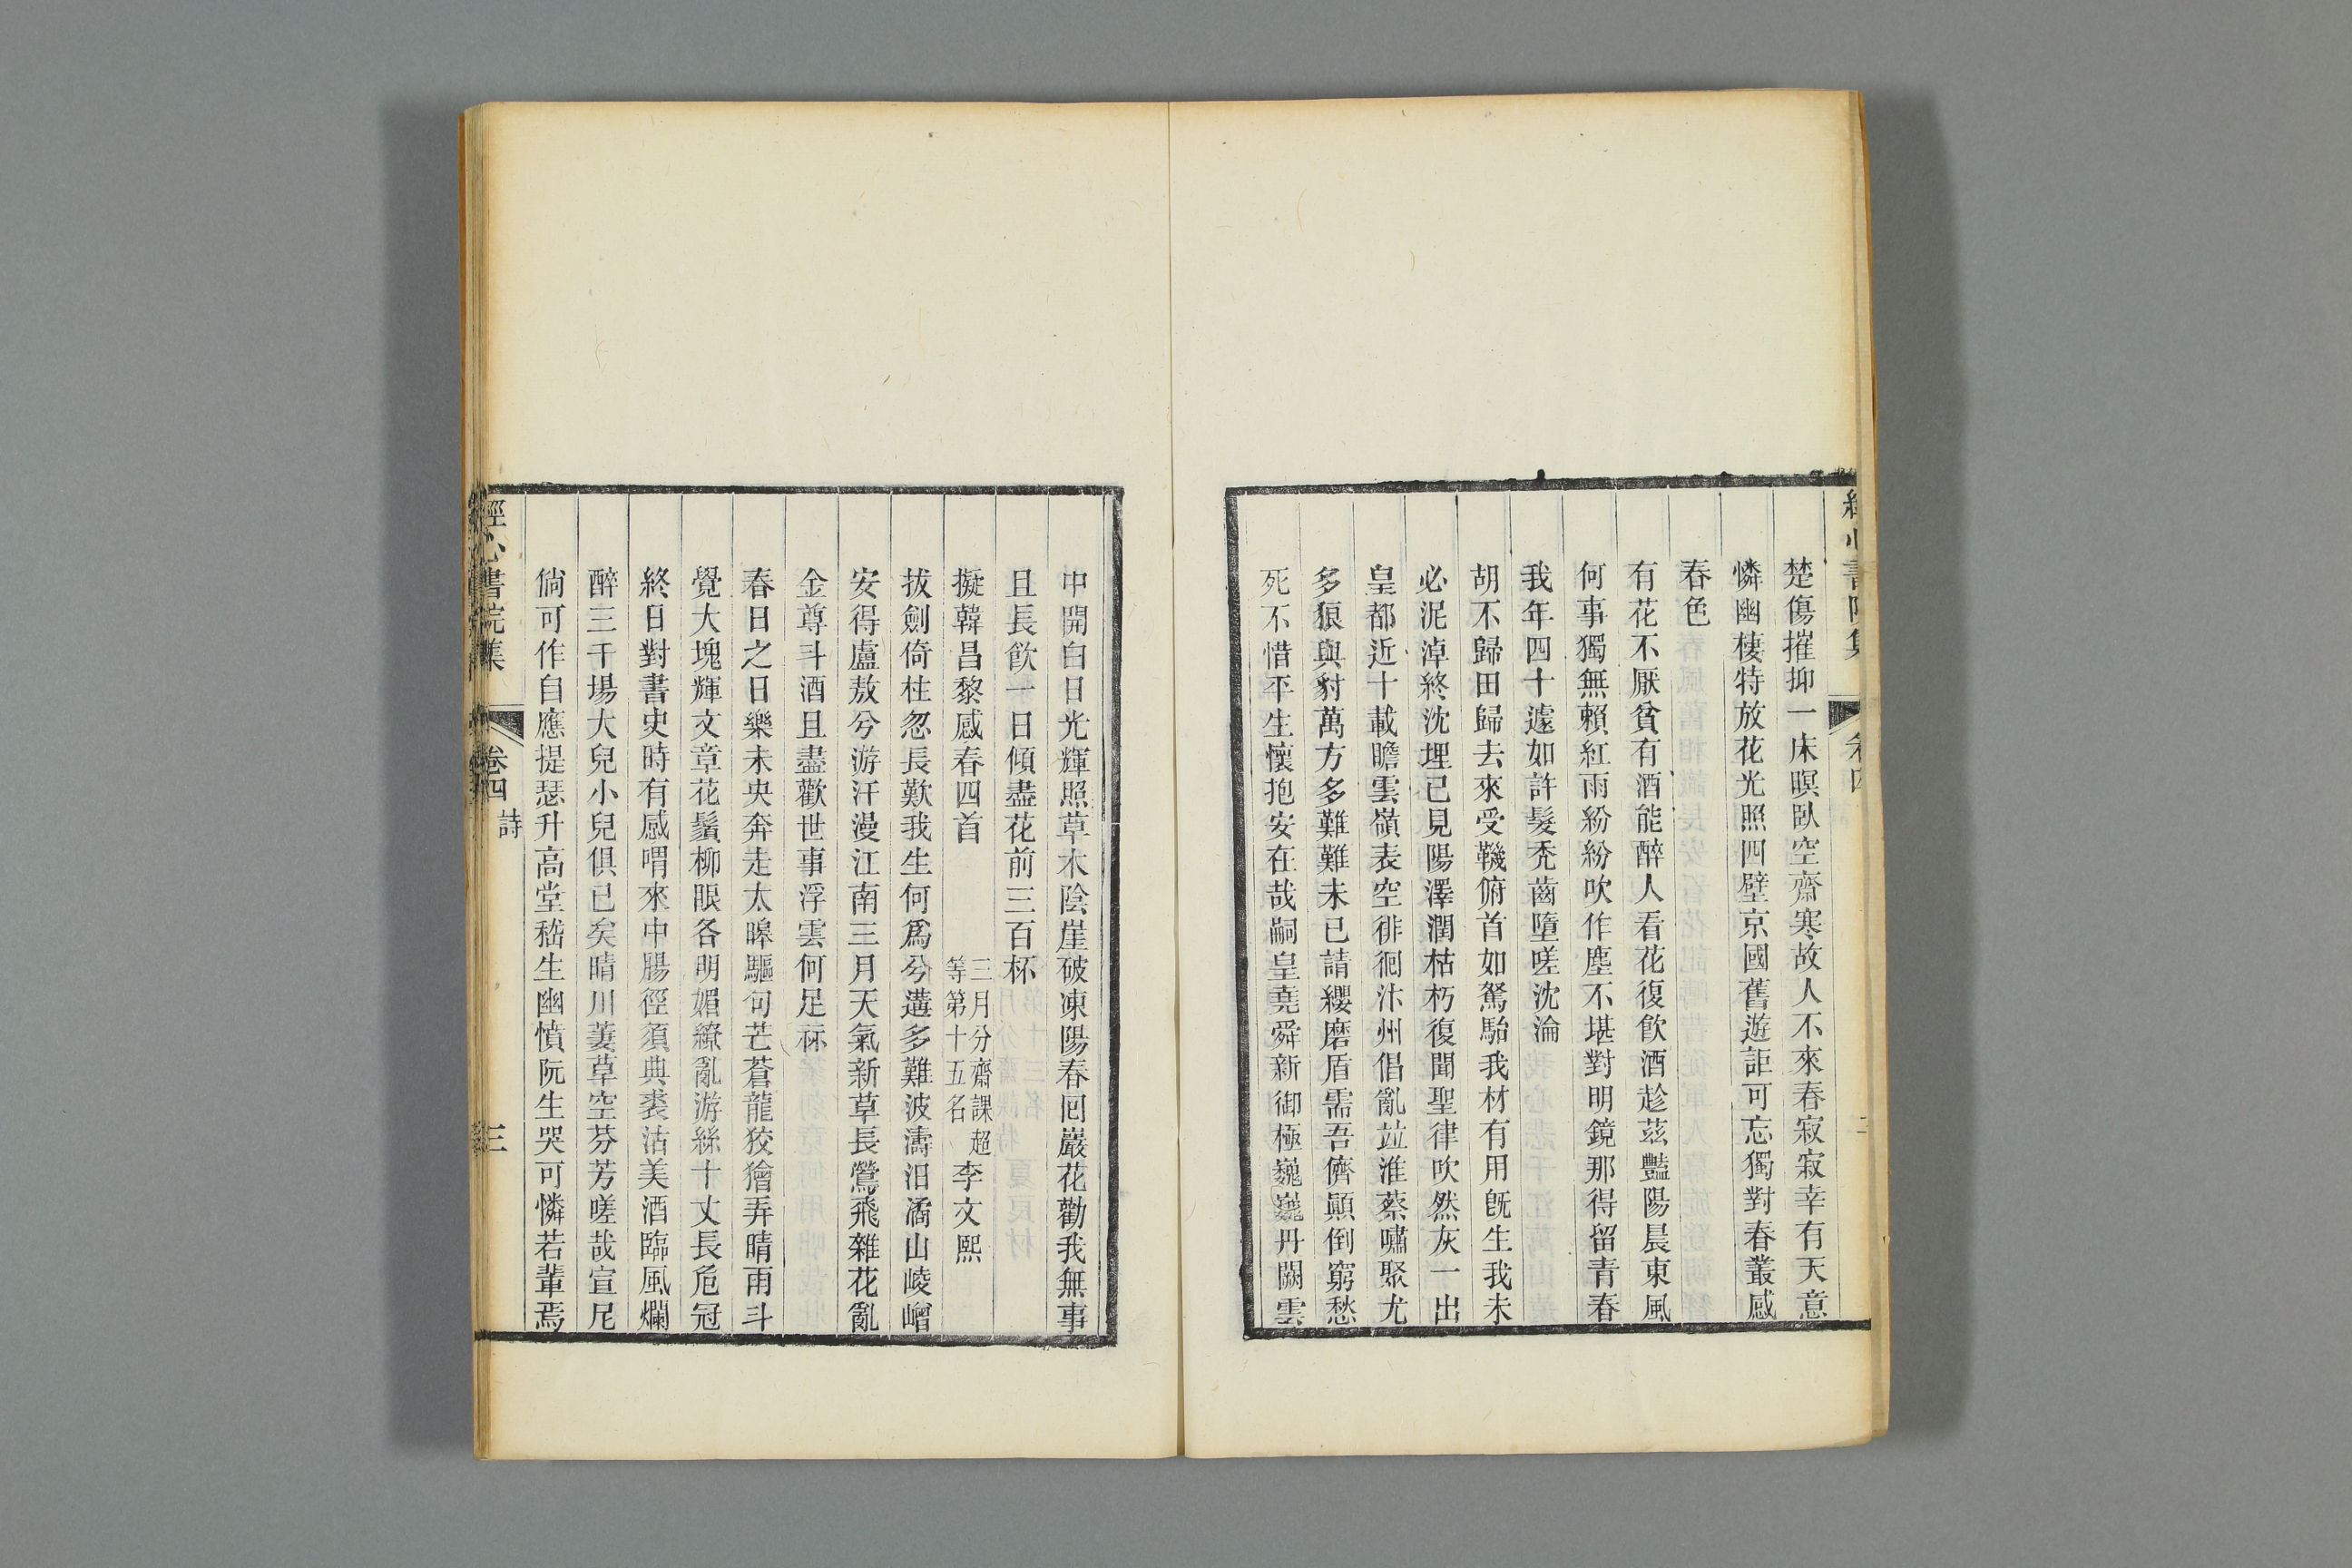 楚傷摧抑一床暝臥空齋寒故人不來春寂寂幸有天意
憐幽棲特放花光照四壁京國舊遊詎可忘獨對春叢感
春色
有花不厭貧有酒能醉人看花復飲酒趁茲豔陽晨東風
何事獨無賴紅雨紛紛吹作塵不堪對明鏡那得留青春
我年四十遽如許髮禿齒墮嗟沈淪
胡不歸田歸去來受鞿俯首如駑駘我材有用旣生我未
必泥淖終沈埋已見陽澤潤枯朽復聞聖律吹然灰一出
皇都近十載瞻雲嶺表空徘徊汴州倡亂並淮蔡嘯聚尤
多狼與豺萬方多難難未已請纓磨盾需吾儕顚倒窮愁
死不惜平生懷抱安在哉嗣皇堯舜新御極巍巍丹闕雲
中開白日光輝照草木陰崖破凍陽春回巖花勸我無事
且長飲一日傾盡花前三百杯
擬韓昌黎感春四首 三月分齋課超等第十五名 李文熙
拔劍倚柱忽長歎我生何爲兮遘多難波濤汨潏山崚嶒
安得盧敖兮游汗漫江南三月天氣新草長鶯飛雜花亂
金尊斗酒且盡歡世事浮雲何足𥘽
春日之日樂未央奔走太皞驅句芒蒼龍狡獪弄晴雨斗
覺大塊輝文章花鬚柳眼各明媚繚亂游絲十丈長危冠
終日對書史時有感喟來中腸徑須典裘沽美酒臨風爛
醉三千場大兒小兒俱已矣晴川萋草空芬芳嗟哉宣尼
倘可作自應提瑟升高堂嵇生幽憤阮生哭可憐若輩焉
經心書院集 卷四 詩 三